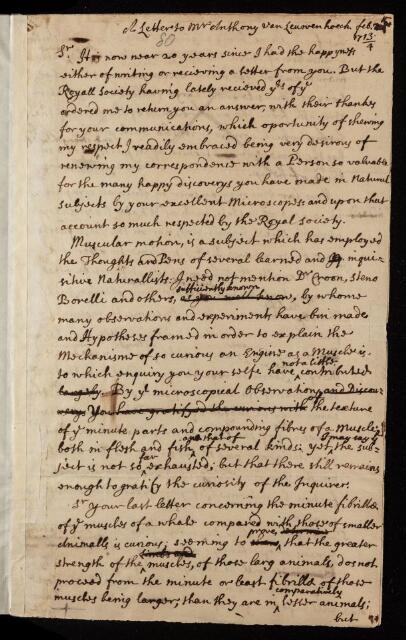 A Letter to Mr Anthony van Leuwenhoeck feb.
1713/4
80
Sr. It is now near 20 years since I had the happyness
either of writing or recieving a Letter from you. But the
Royall Society having lately recieved yrs of ye
ordered me to return you an answer, with their thankes
for your communications, which oportunity of shewing
my respect, I readily embraced being very desirous of
renewing my correspondence with a Person so valuable
for the many happy discoverys you have made in Natural
subjects by your excellent Microscopes and upon that
account so much respected by the Royal Society.
Muscular motion, is a subject which has employed
the Thoughts and Pens of several learned and inqui-
sitive Naturallists. I need not mention Dr Croon, Steno
sufficiently known
Borelli and others, as you well know, by whome
many observations and experiments have bin made
and Hypotheses framed in order to explain the
Mechanisme of so curious an Engine as a Muscle is.
not a little
to which enquiry you your selfe have contributed
largely. By ye microscopical Observations and Discov-
erys You have gratifyed the curious with of the texture
of ye minute parts and compounding fibres of a Muscle;
and that of I may say ye
both in flesh and fish, of several kinds: yet the sub-
far
ject is not so exhausted; but that there still remains
enough to gratify the curiosity of the Inquirer.
Sr Your last letter concerning the minute fibrillæ
of ye muscles of a whale compared with those of smaller
prove
Animalls is curious; seeming to, that the greater
strength of the muscles, of those larg animals, dos not
proceed from the minute or least fibrillæ of those
comparatively
muscles being larger, than they are in lesser animals;
but